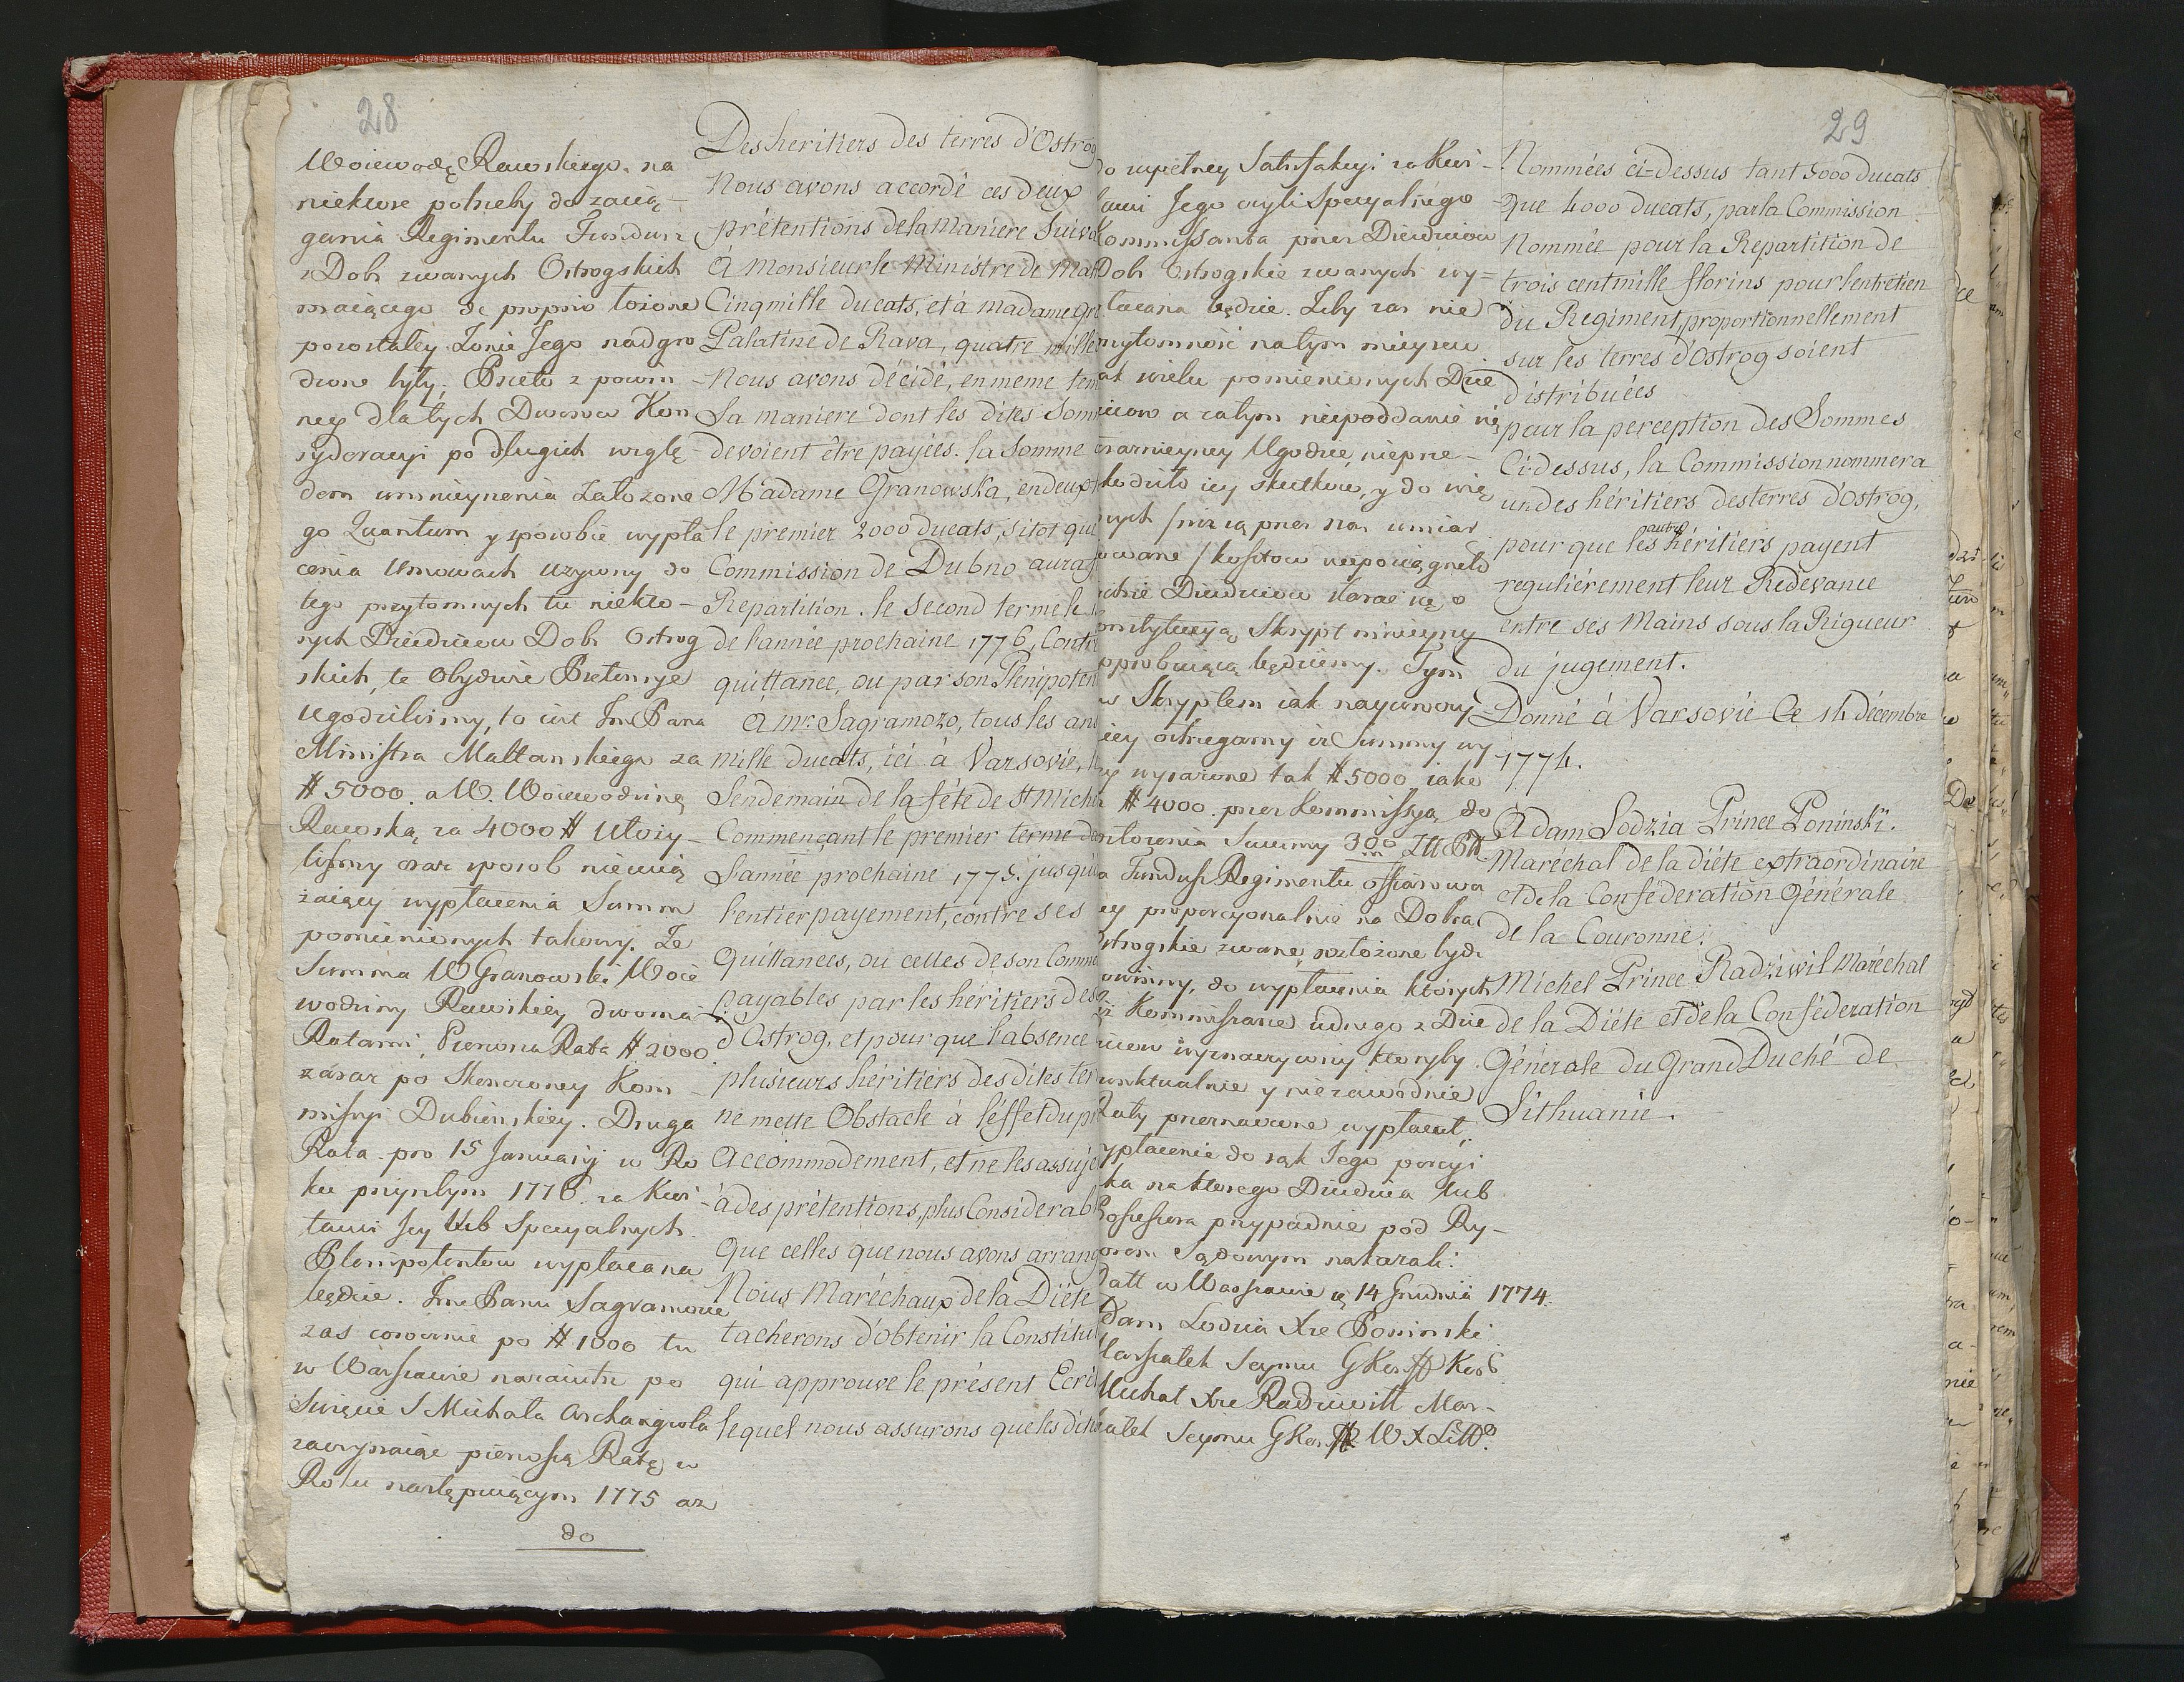 28
Woiewodę Rawskiego na
niektore potrzeby do zacią-
gania Regimentu Fundusz
z Dobr zwanych Ostrogskich
maiącego de proprio łożone
pozostałey Żonie Jego nadgro
dzone były. Przeto z powin-
ney dla tych Dworow Kon
syderacyi po długich wzglę-
dem umnieyszenia założone
go Quantum y sposobie wypła
cenia Umowach uzywszy do
tego przytomnych tu niekto-
rych Dziedzicow Dobr Ostrog
skich, te Obydwie Pretensye
Ugodziliśmy, to iest Jmć Pana
Ministra Maltanskiego za
# 5000. a W. Woiewodzinę
Rawską za 4000 # Ułoży-
liśmy oraz sposob nieuciążaiący wypłacenia Summ
pomienionych takowy. Że
Summa W Granowskiey Woie
wodziny Rawskiey dwoma
Ratami, Pierwsza Rata # 2000
zaraz po Skonczoney Kom-
missyi Dubienskiey. Druga
Rata pro 15 Januarij w Ro
ku przyszłym 1776. za Kwi-
tami Jey lub Specyalnych
Plenipotentow wypłacana
będzie. Jmć Panu Sagramozie
zaś corocznie po # 1000 tu
w Warszawie nazaiutrz po
Święcie S Michała Archangioła
zaczynaiąc pierwszą Ratę w
Roku następuiącym 1775 aż
do
Des heritiers des terres d'Ostrog
Nous avons accordé ces deux
prétentions de la Maniere Suiva
à Monsieur le Ministre de Mal
Cinq mille ducats, et à madame Gr
Palatine de Rava, quatre mille
Nous avons décidé, en meme tem
La maniere dont les dites Som
devoient être payées. la Somme
Madame Granowska, en deux
le premier 2000 ducats, sitot qu
Commission de Dubno aura
Repartition. le second terme le
de l'année prochaine 1776, Contre
quittance, ou par son Plenipoten
à Mr. Sagramozo, tous les an
mille ducats, ici à Varsovie, le
Lendemain de la fête de St Mich
Commençant le premier terme de
L'année prochaine 1775. jusqu'à
l'entier payement, contre ses
Quittances, ou celles de son Comm
payables par les héritiers des
d'Ostrog, et pour que l'absence
plusieurs héritiers des dites ter
ne mette Obstacle à l'effet du pr
Accommodement, et ne les assuje
à des prétentions, plus Considerabl
Que celles que nous avons arrang
Nous Maréchaux de la Diéte
tacherons d'obtenir la Constitut
qui approuve le présent Ecrit
lequel nous assurons que les dites
29
do zupełney Satisfakcyi za Kwi-
tami Jego czyli Specyalnego
Kommissanta przez Dziedzicow
Dobr Ostrogskie zwanych wy-
łacana będzie. Żeby zaś nie
przytomność na tym mieyscu
ak wielu pomienionych Dzie
zicow a zatym niepoddanie się
ninieyszey Ugodzie, nieprze-
kodziło iey skutkow, y do wię
szych / niż są przez nas umiar
kowane / kosztow niepociągneło
ronstytucyą Skrypt ninieyszy
pprobuiącą będziemy. Tym
ż Skryptem iak nayuroczy
iey ostrzegamy iż Summy wy
ey wyrażone tak # 5000 iako
# 4000. przez Kommissyą do
Summy 300/m Złł Pll
a Fundusz Regimentu offiarowa
ey proporcyonalnie na Dobra
strogskie zwane, rozłożone bydź
owinny, do wypłacenia których
iż Kommissarze iednego z Dzie
zicow wyznaczywszy ktoryby
punktualnie y niezawodnie
Raty przeznaczone wypłacał,
ypłacenie do rąk Jego porcyi
ka na ktorego Dziedzica lub
Possessora przypadnie pod Ry-
orem Sądowym nakazali.
Datt w Warszawie d. 14 Grudnia 1774.
dam Lodzia Xże Poninski
Marszałek Seymu G Kor
Michał Xże Radziwiłł Mar-
szałek Seymu G Kon W X Litt°
Nommées ci-dessus tant 5000 ducats
que 4000 ducats, par la Commission
Nommée pour la Repartition de
trois cent mille florins pour l'entretien
du Regiment, proportionnellement
sur les terres d'Ostrog soient
distribuées
pour la perception des Sommes
Ci-dessus, la Commission nommera
un des héritiers des terres d'Ostrog,
pour que les autres héritiers payent
reguliérement leur Redevance
entre ses Mains sous la Rigueur
du jugement.
Donné à Varsovie Ce 14 décembre
1774.
Adam Lodzia Prince Poninski.
Maréchal de la diéte extraordinaire
et de la Conféderation Générale
de la Couronne.
Michel Prince Radziwil Maréchal
de la Diéte et de la Conféderation
Génerale du Grand Duché de
Lithuanie.